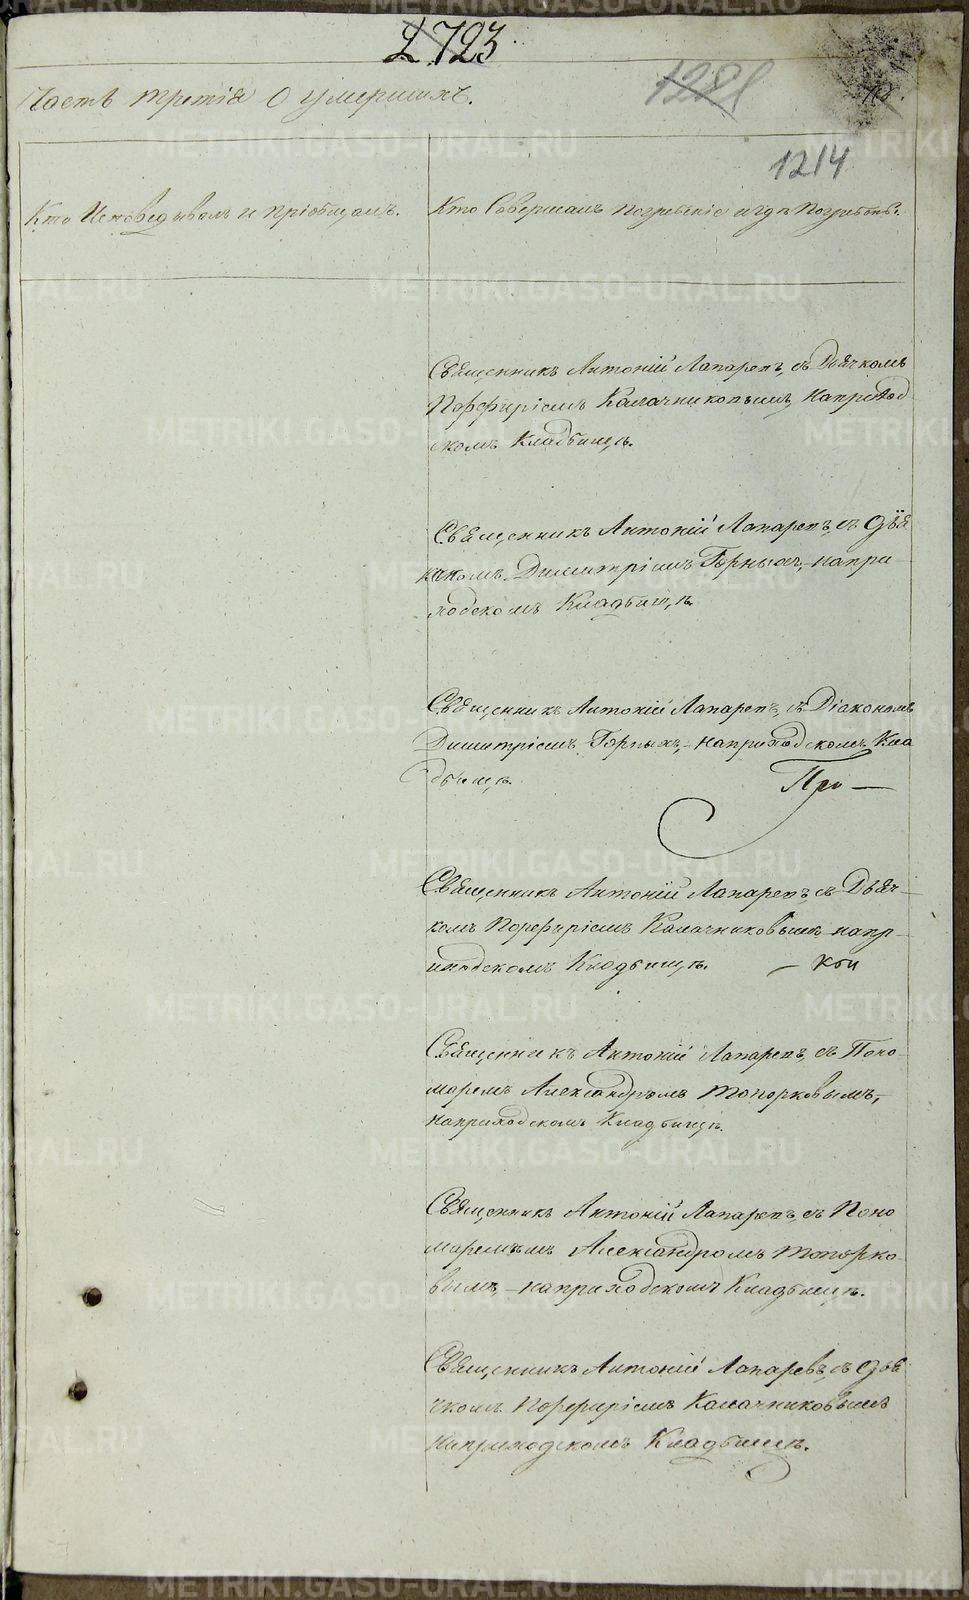 723
Часть третія О умершихъ.
1281
1214
Кто Исповѣдывалъ и пріобщалъ.
Кто Совершалъ погребеніе и гдѣ Погребенъ.
Священникъ Антоній Лапаревъ, съ Дьячкомъ
Порфиріемъ Калачниковымъ, наприход
скомъ Кладбищѣ.
Священникъ Антоній Лапаревъ, съ Дїа
кономъ Димитріемъ Горныхъ, - напри
ходскомъ Кладбищѣ.
Священникъ Антоній Лапаревъ, съ Діакономъ
Димитріемъ Горныхъ, - наприходскомъ Кла
дбищѣ.
Про —
Священникъ Антоній Лапаревъ, съ Дьяч-
комъ Порфиріемъ Калачниковымъ напр-
иходскомъ Кладбищѣ.
Священникъ Антоній Лапаревъ, съ Поно-
маремъ Александромъ Топорковымъ,-
наприходскомъ Кладбищѣ.
Священникъ Антоній Лапаревъ, съ Поно
Александромъ Топорко-
вымъ - наприходскомъ Кладбищѣ.
Священникъ Антоній Лапаревъ, съ Дья
чкомъ Порфиріемъ Калачниковымъ
наприходскомъ Кладбищѣ.
METRIKI.GASO-URAL.RU